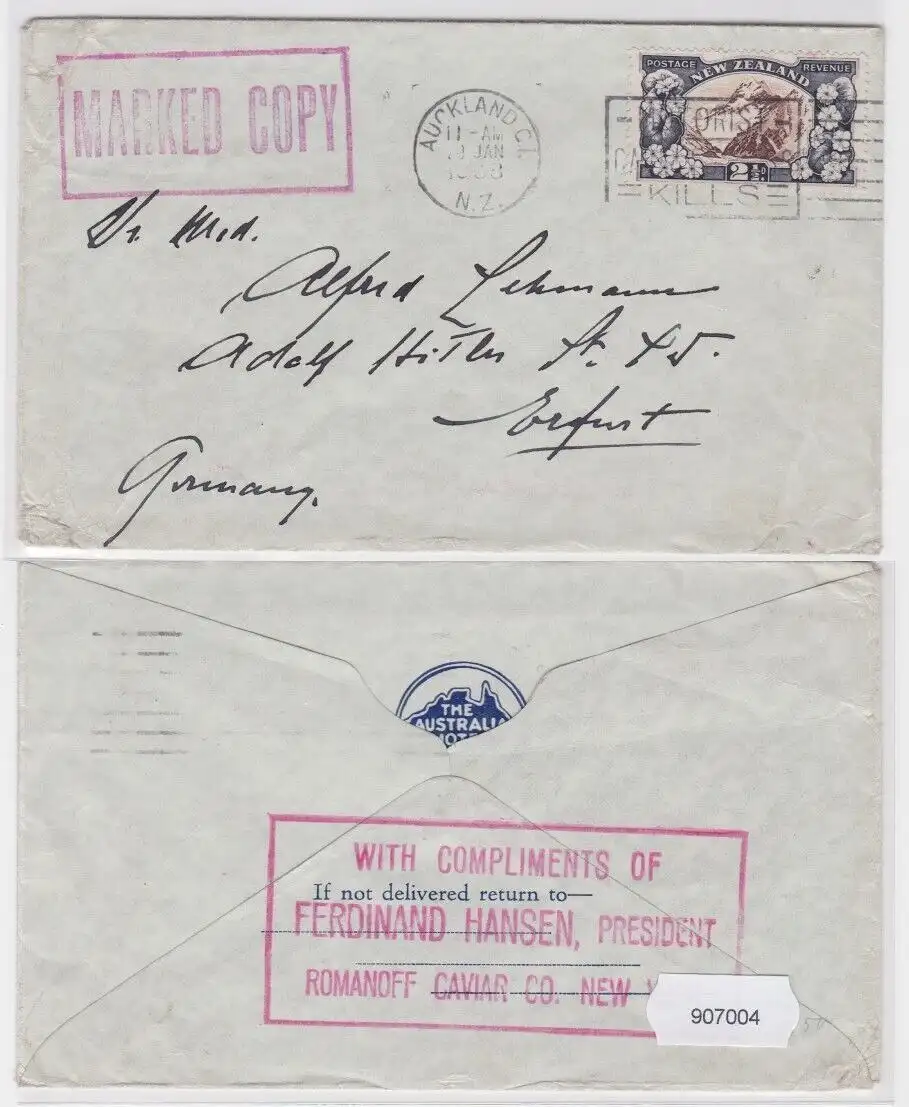 MARKED COPY
AUCKLAND C.1.
11-AM
JAN
N.Z.
POSTAGE NEW ZEALAND REVENUE
2½D
KILLS
Dr. Med.
Alfred Lehmann
Adolf Hitler St.
Erfurt
Germany.
THE
AUSTRALIA
WITH COMPLIMENTS OF
If not delivered return to—
FERDINAND HANSEN, PRESIDENT
ROMANOFF CAVIAR CO. NEW
907004